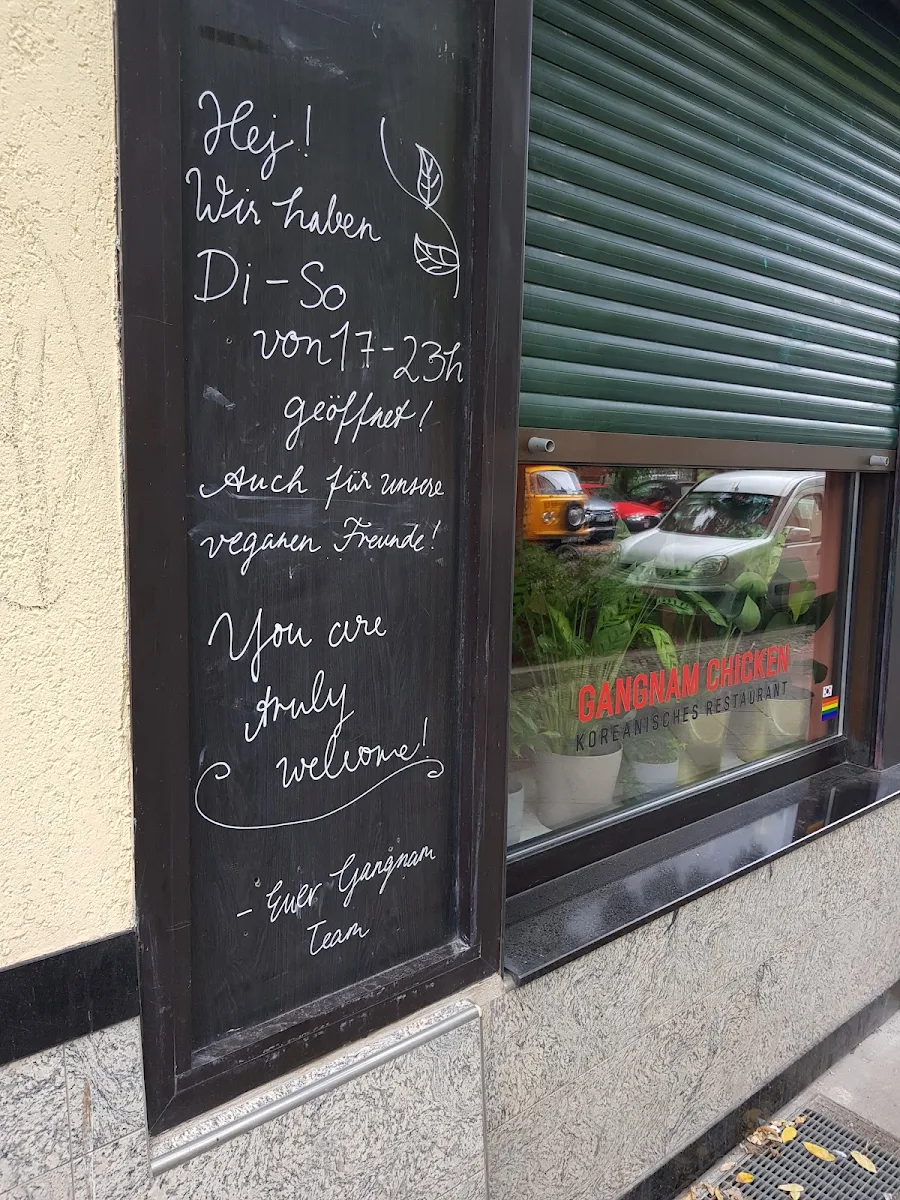 Hej!
Wir haben
Di-So
von 17-23h
geöffnet!
Auch für unsere
veganen Freunde!
You are
truly
welcome!
- Euer Gangnam
Team
GANGNAM CHICKEN
KOREANISCHES RESTAURANT